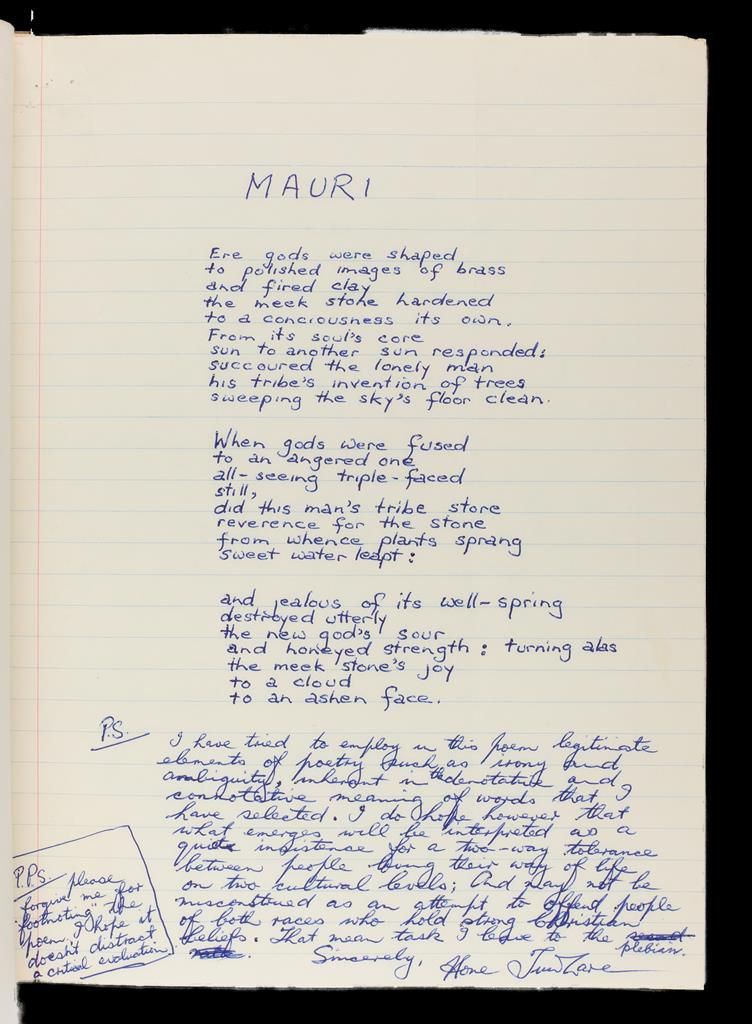 MAURI
Ere gods were shaped
to polished images of brass
and fired clay
the meek stone hardened
to a conciousness its own.
From its soul's core
sun to another sun responded:
succoured the lonely man
his tribe's invention of trees
sweeping the sky's floor clean.
When gods were fused
to an angered one
all-seeing triple-faced
still,
did this man's tribe store
reverence for the stone
from whence plants sprang
sweet water leapt:
and jealous of its well-spring
destroyed utterly
the new god's sour
and honeyed strength: turning alas
the meek stone's joy
to a cloud
to an ashen face.
P.S.
I have tried to employ in this poem legitimate
elements of poetry such as irony and
ambiguity, inherent in the denotative and
connotative meaning of words that I
have selected. I do hope however that
what emerges will be interpreted as a
quiet insistence for a two-way tolerance
between people living their way of life
on two cultural levels; And may not be
misconstrued as an attempt to offend people
of both races who hold strong Christian
beliefs. That mean task I leave to the
plebian.
Sincerely, Hone Tuwhare
P.P.S. please
forgive me for
footnoting the
poem. I hope it
doesn't distract
a critical evaluation